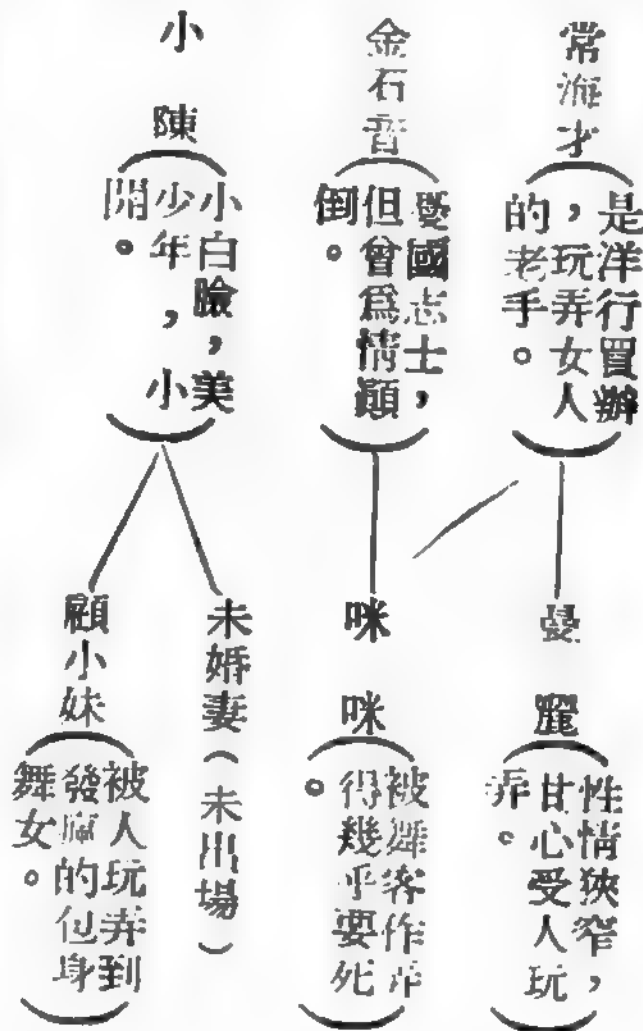 常海才(是洋行買辦
,玩弄女人
的老手。)
金石音(愛國志士,
但曾爲情顚
倒。)
小陳(小白臉,美
少年,小
開。)
曼麗(性情狹窄,
甘心受人玩
弄。)
咪咪(被舞客作弄
得幾乎要死
。)
未婚妻(未出場)
顧小妹(被人玩弄到
發瘋的包身
舞女。)